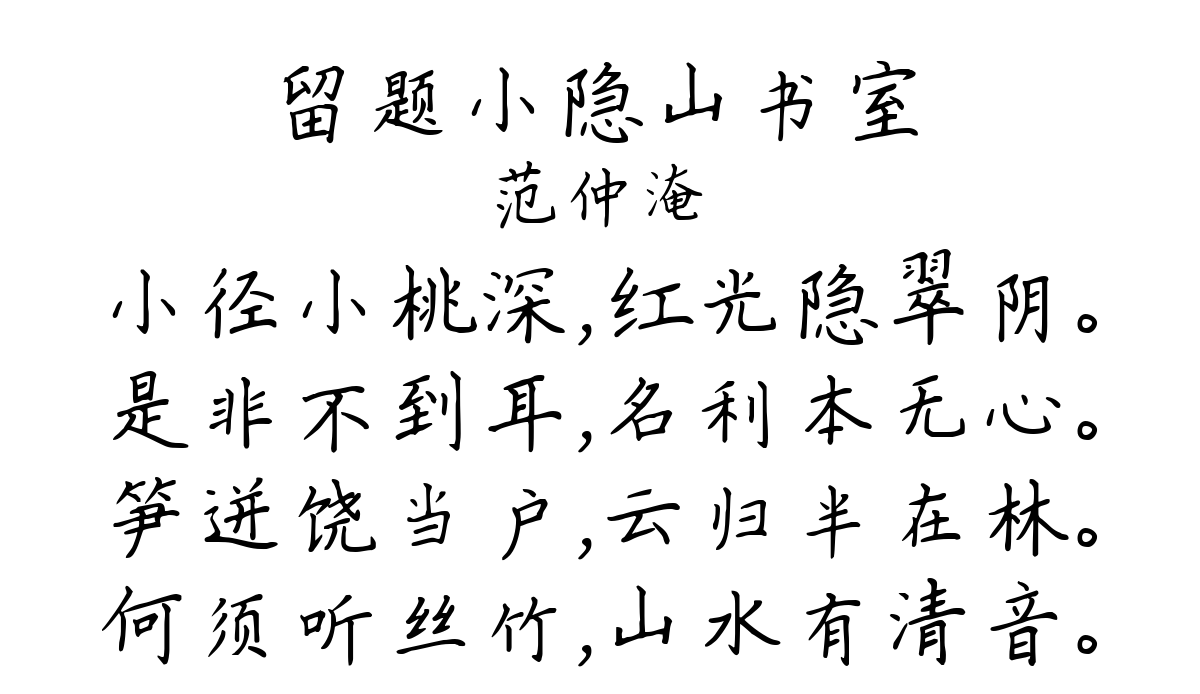 留题小隐山书室
范仲淹
小径小桃深,红光隐翠阴。
是非不到耳,名利本无心。
笋迸饶当户,云归半在林。
何须听丝竹,山水有清音。